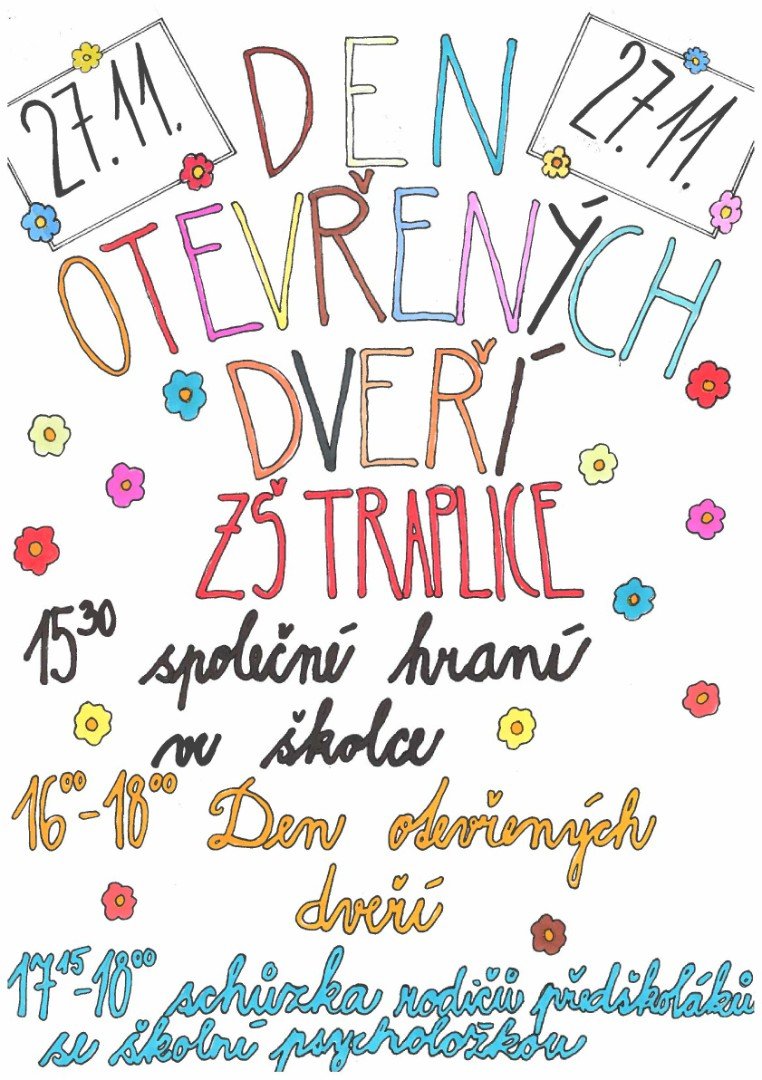 27.11.
27.11.
DEN
OTEVŘENÝCH
DVEŘÍ
ZŠ TRAPLICE
15³⁰ společné hraní
ve školce
16⁰⁰-18⁰⁰ Den otevřených
dveří
17¹⁵-18⁰⁰ schůzka rodičů předškoláků
se školní psycholožkou